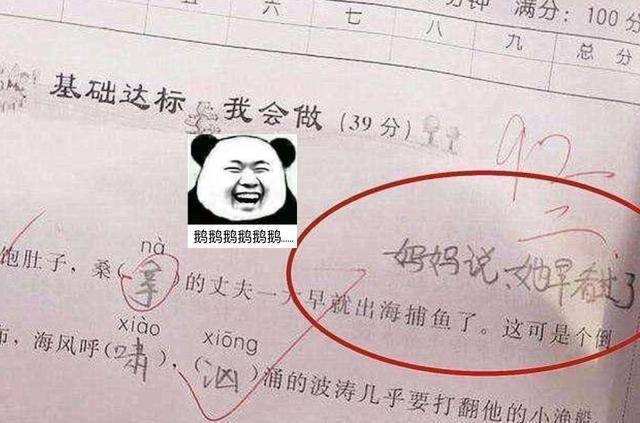 钟 满分：100分
五 六 七 八 九 总分
基础达标 我会做 (39分)
92
鹅鹅鹅鹅鹅鹅......
妈妈说、她早看过了
nà
饱肚子，桑(拿)的丈夫一大早就出海捕鱼了。这可是个倒
xiào xiōng
海风呼(啸)，(汹)涌的波涛几乎要打翻他的小渔船